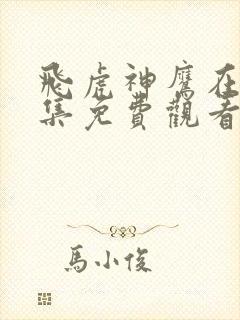 飛虎神鷹在
集免費觀看
馬小俊